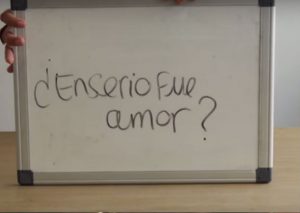 ¿Enserio Fue
amor?